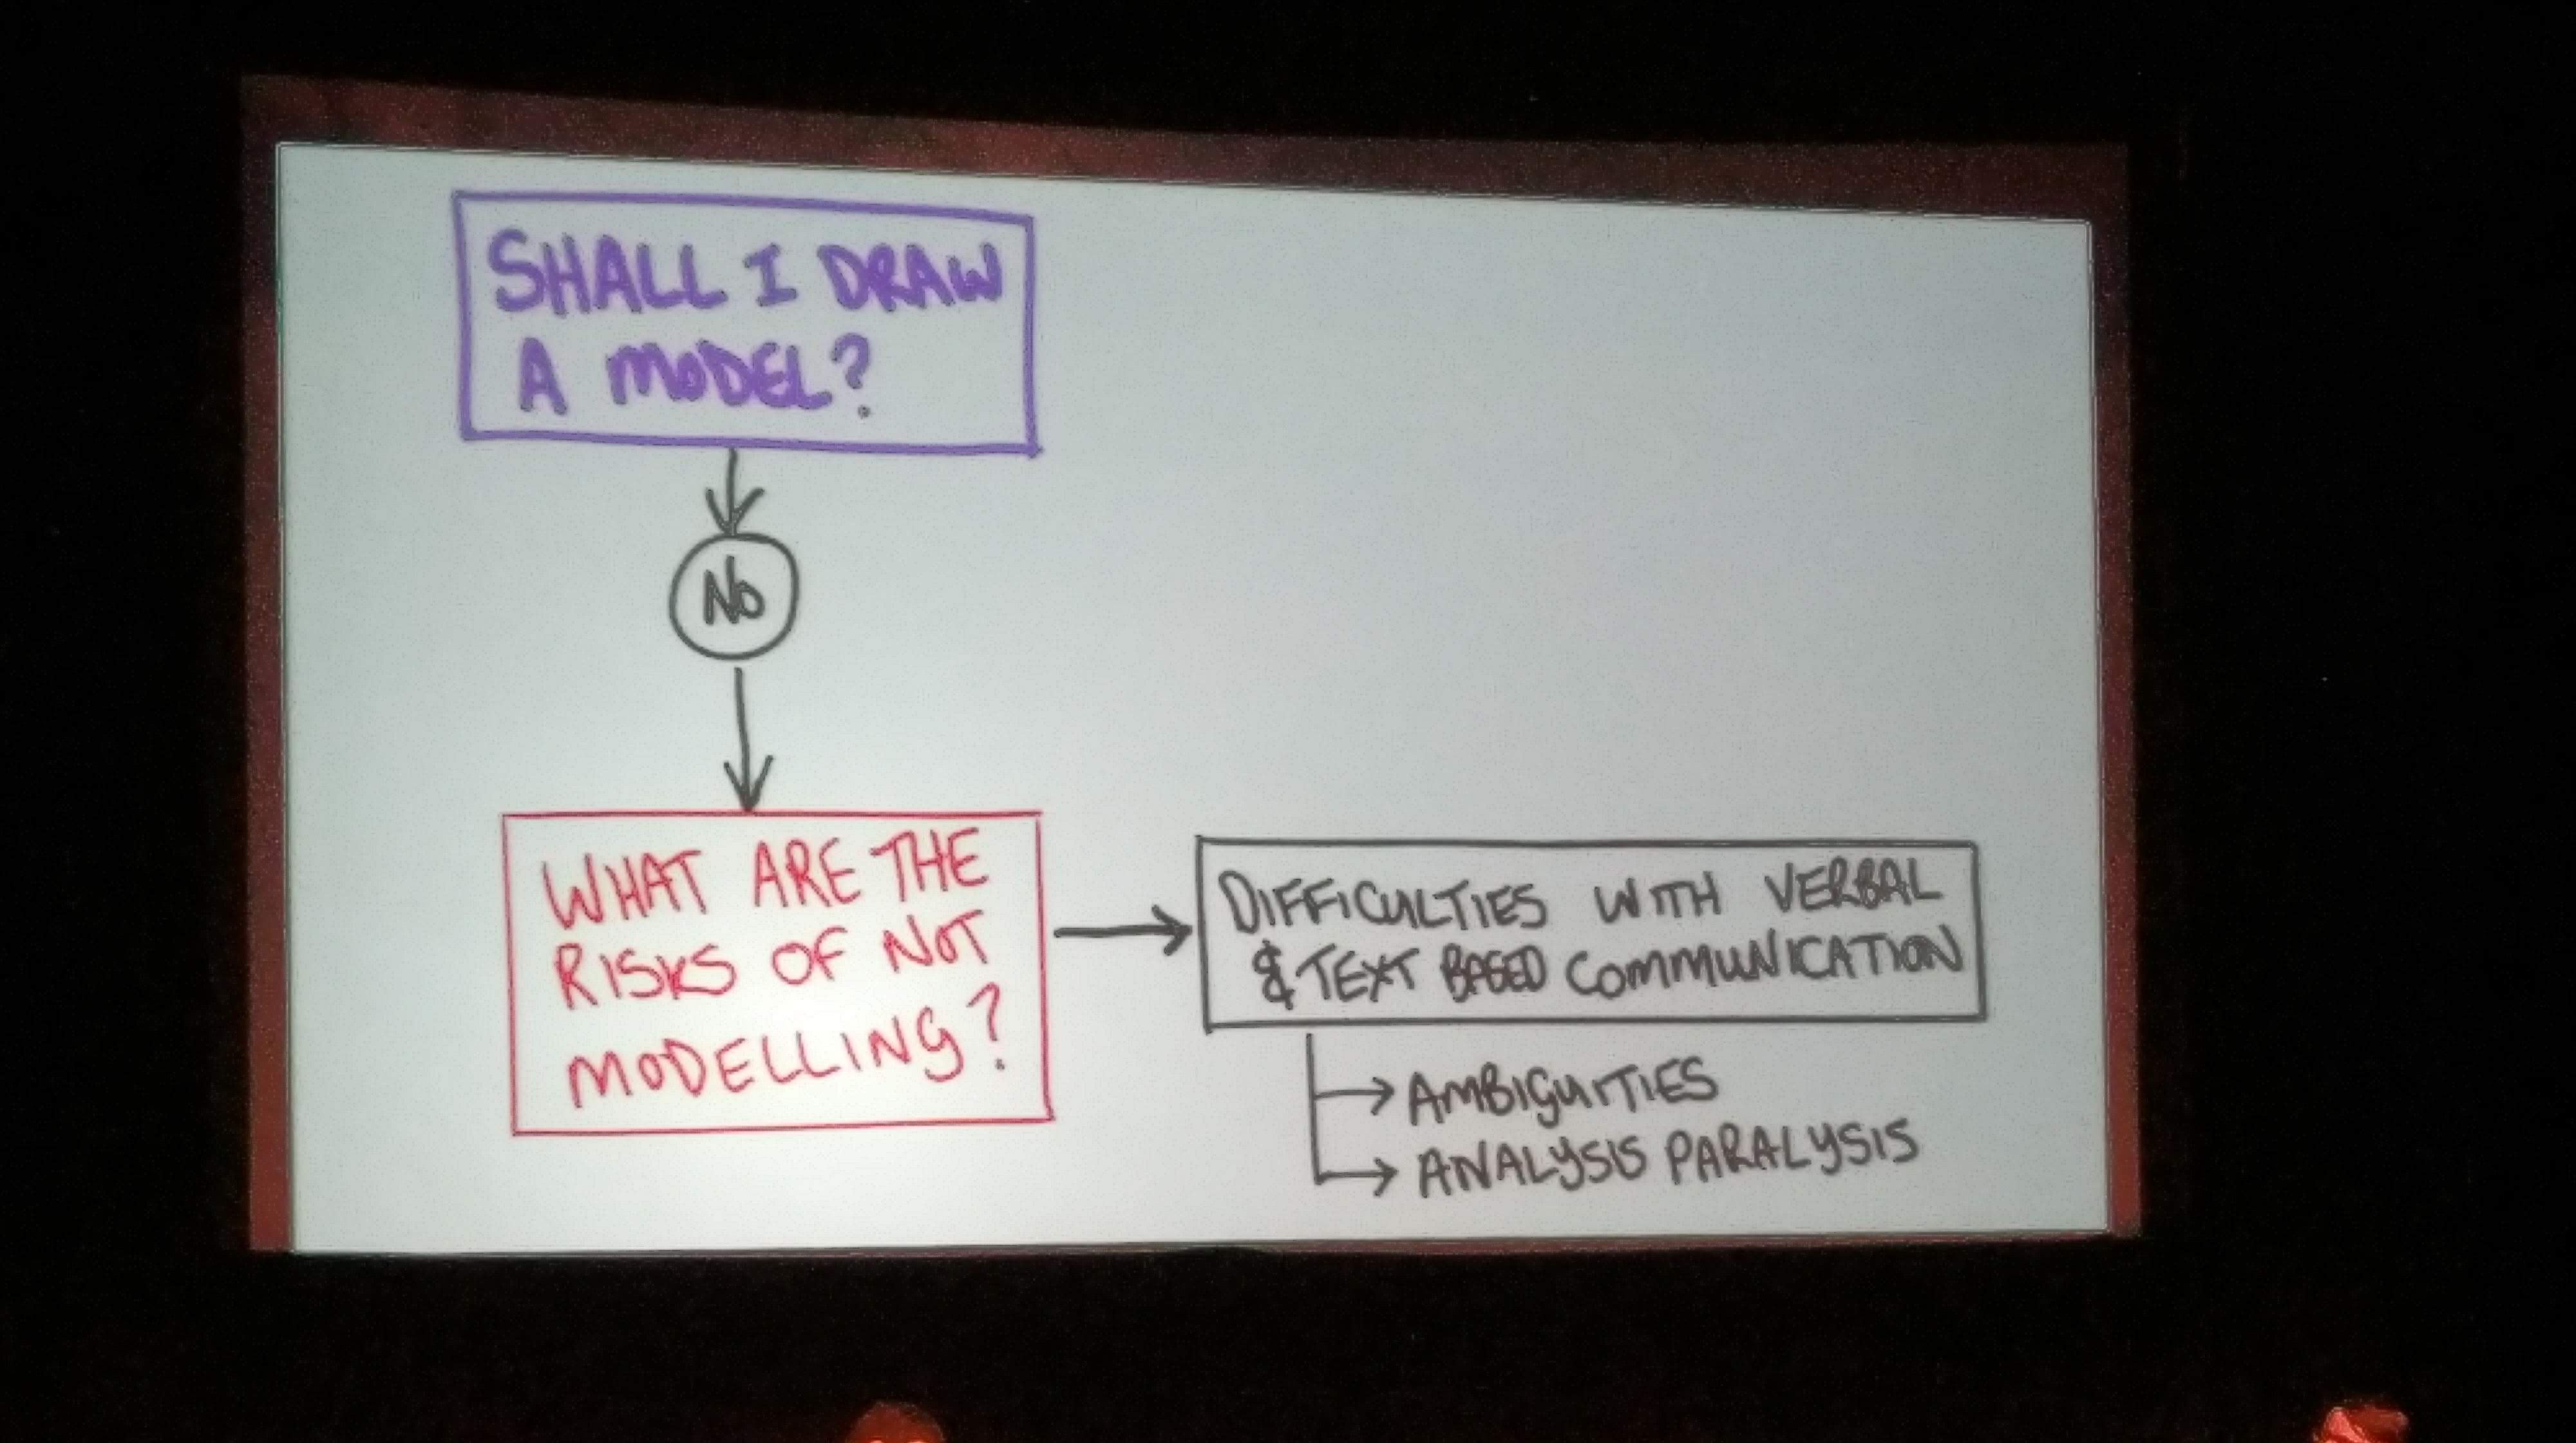 SHALL I DRAW
A MODEL?
No
WHAT ARE THE
RISKS OF NOT
MODELLING?
DIFFICULTIES WITH VERBAL
& TEXT BASED COMMUNICATION
AMBIGUITIES
ANALYSIS PARALYSIS